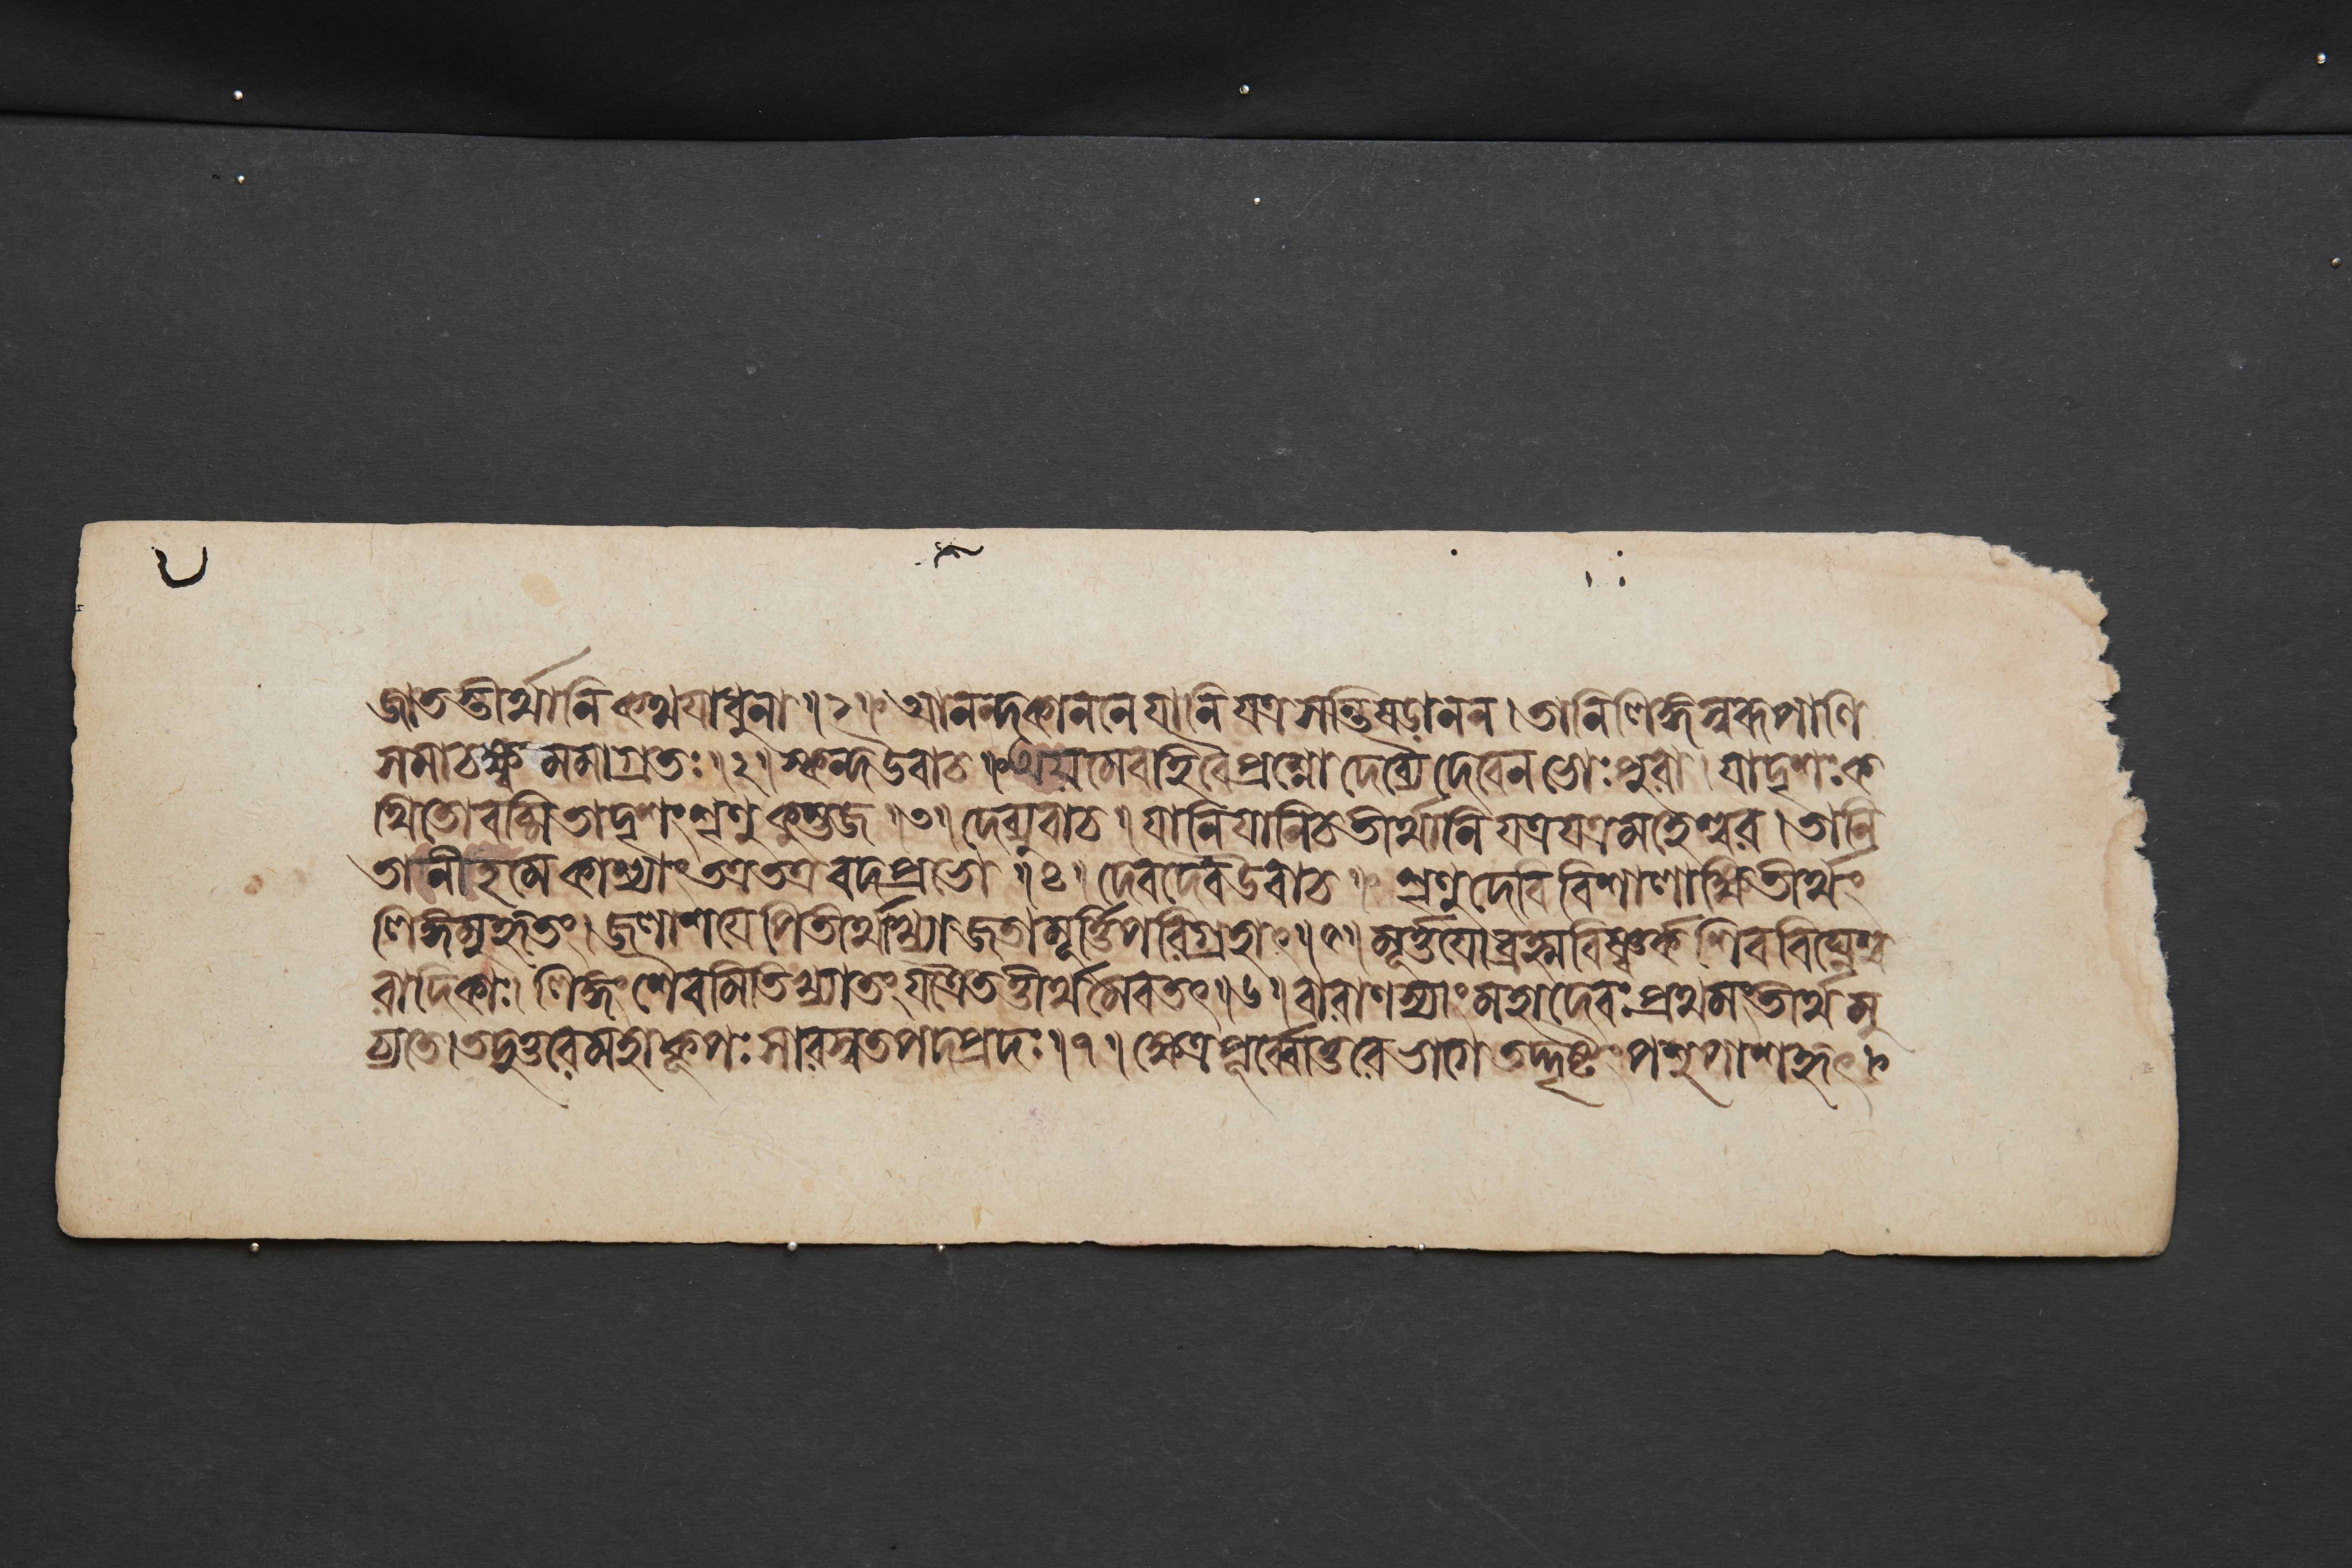 জাততীর্থানি কথয়াধুনা ॥ ১ ॥ আনন্দকাননে যানি যত্র সন্তি ষড়ানন । তানি লিঙ্গস্বরূপাণি
সমাচক্ষ্ব মমাগ্রতঃ ॥ ২ ॥ স্কন্দ উবাচ ॥ অয়মেব হি বৈ প্রশ্নো দেব্যৈ দেবেন ভোঃ পুরা । যাদৃশঃ ক
থিতো বচ্মি তাদৃশং শৃণু কুম্ভজ ॥ ৩ ॥ দেব্যুবাচ ॥ যানি যানি চ তীর্থানি যত্র যত্র মহেশ্বর । তানি
তানীহ মে কাশ্যাং তত্র তত্র বদ প্রভো ॥ ৪ ॥ দেবদেব উবাচ ॥ শৃণু দেবি বিশালাক্ষি তীর্থং
লিঙ্গমুদাহৃতং । জলাশয়েপি তীর্থাখ্যা জাতা মূর্ত্তিপরিগ্রহাৎ ॥ ৫ ॥ মূর্ত্তয়ো ব্রহ্মবিষ্ণ্বর্ক শিববিঘ্নেশ্ব
রাদিকাঃ । লিঙ্গং শৈবমিতি খ্যাতং যত্রৈতত্তীর্থমেব তৎ ॥ ৬ ॥ বারাণস্যাং মহাদেবঃ প্রথমং তীর্থমু
চ্যতে । তদুত্তরে মহাকূপঃ সারস্বতপদপ্রদঃ ॥ ৭ ॥ ক্ষেত্রপূর্ব্বোত্তরে ভাগে তদ্দৃষ্টং পশুপাশহৃৎ ।